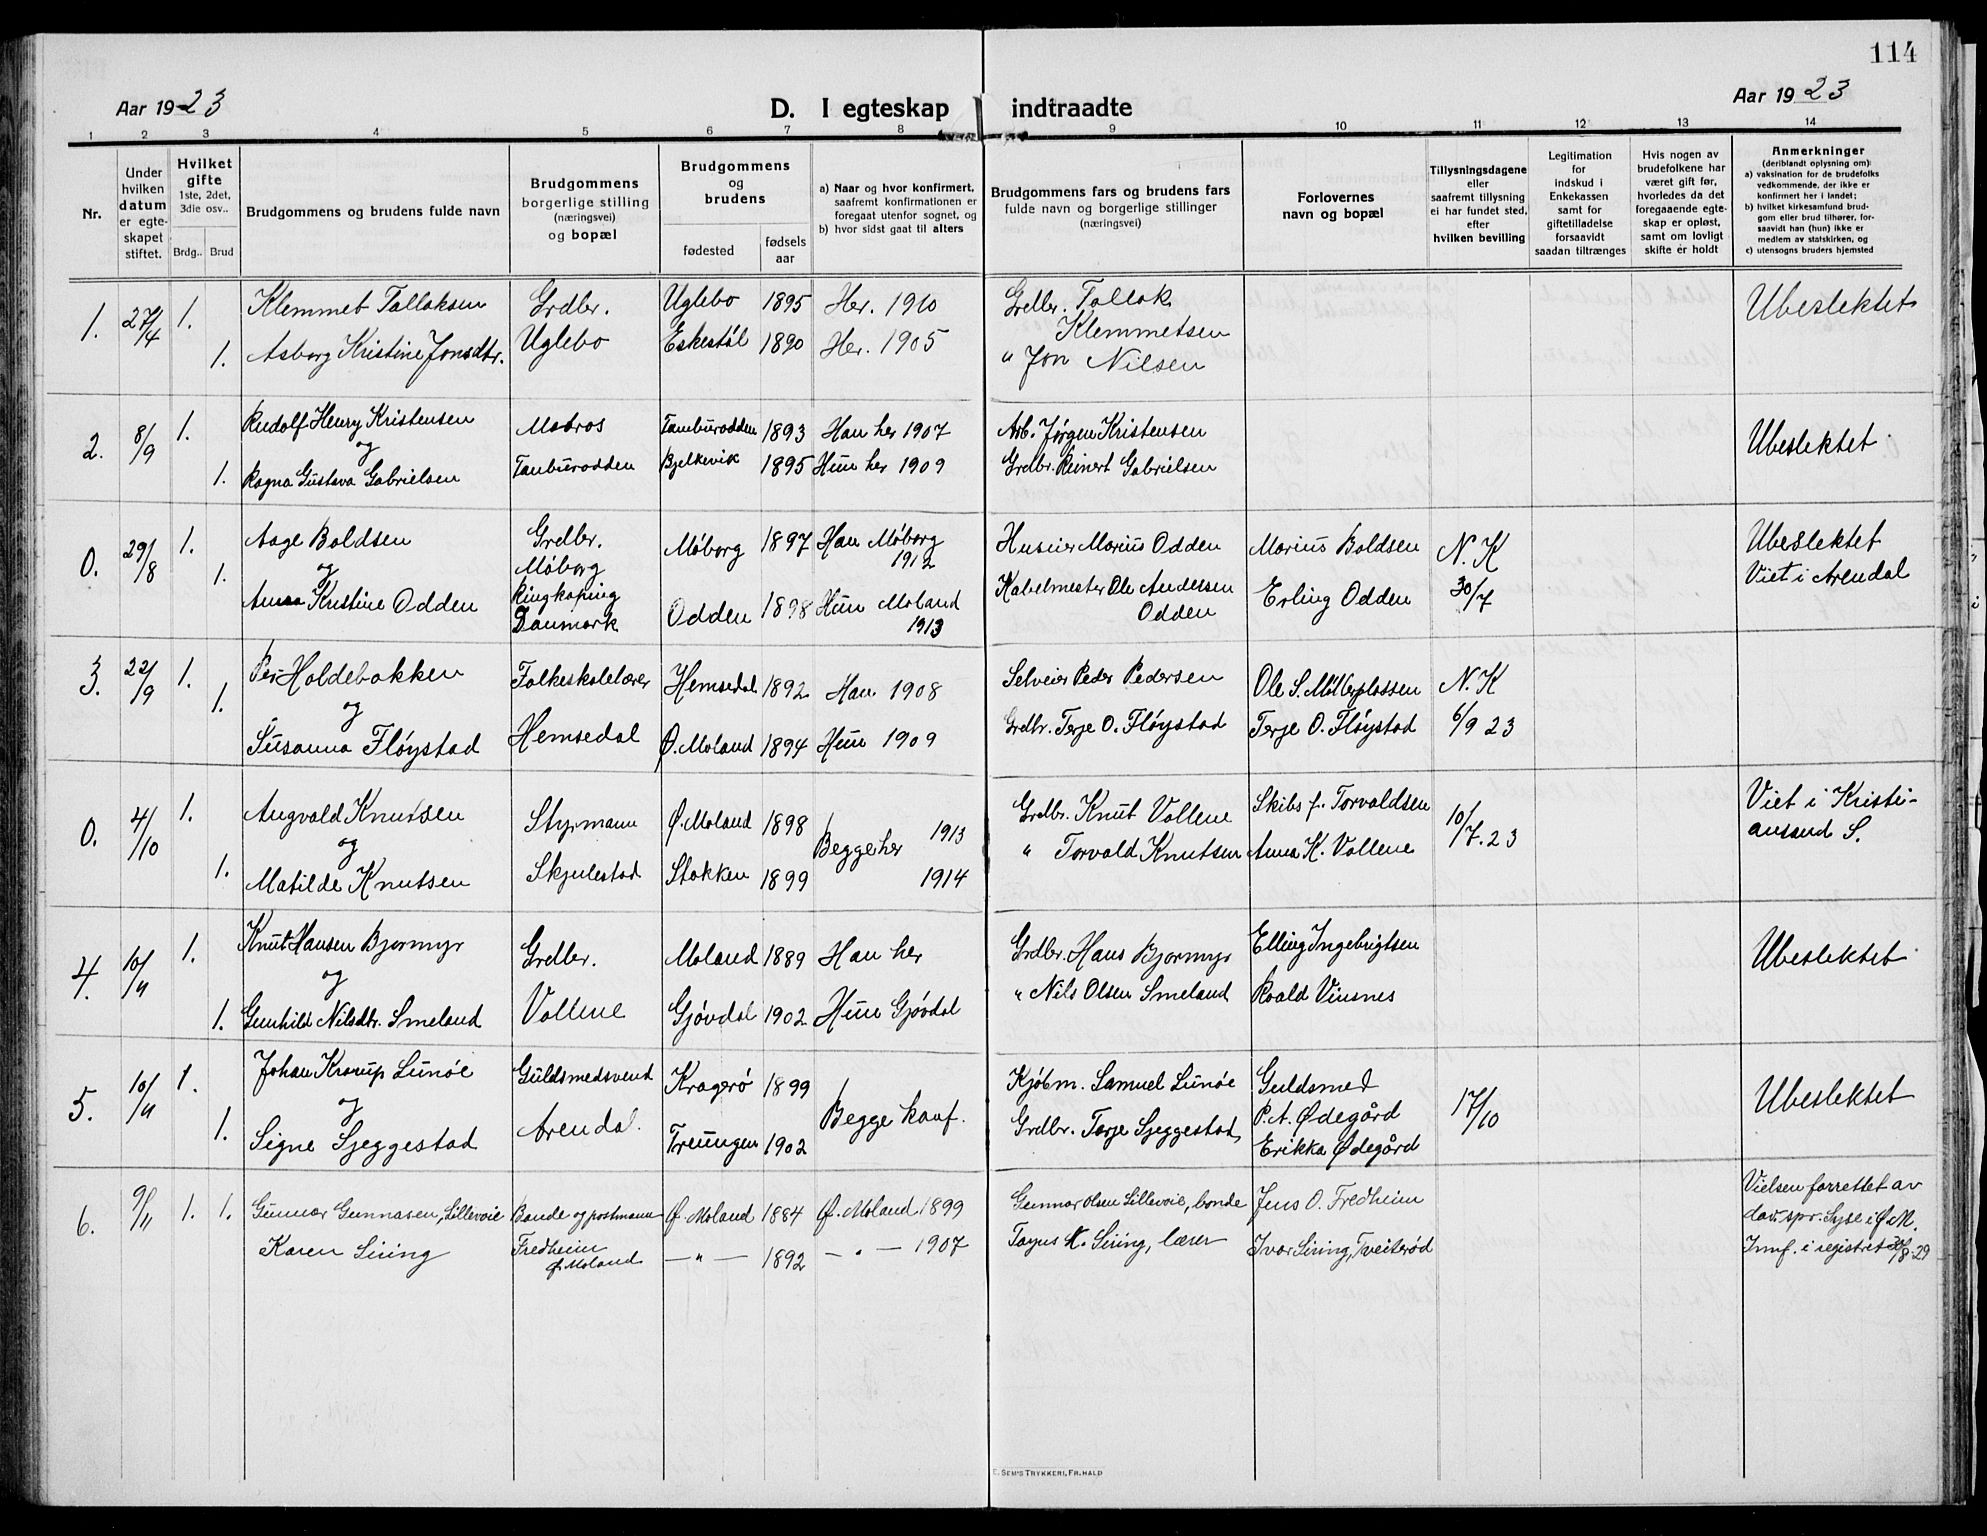 114
Aar 1923
D. I egteskap indtraadte
Aar 1923
1 2 3 4 5 6 7 8 9 10 11 12 13 14
Nr.
Under
hvilken
datum
er egte-
skapet
stiftet.
Hvilket
gifte
1ste, 2det,
3die osv..
Brdg.. Brud
Brudgommens og brudens fulde navn
Brudgommens
borgerlige stilling
(næringsvei)
og bopæl
Brudgommens
og
brudens
fødested
fødsels
aar
a) Naar og hvor konfirmert,
saafremt konfirmationen er
foregaat utenfor sognet, og
b) hvor sidst gaat til alters
Brudgommens fars og brudens fars
fulde navn og borgerlige stillinger
(næringsvei)
Forlovernes
navn og bopæl
Tillysningsdagene
eller
saafremt tillysning
ei har fundet sted,
efter
hvilken bevilling
Legitimation
for
indskud i
Enkekassen
samt for
giftetilladelse
forsaavidt
saadan tiltrænges
Hvis nogen av
brudefolkene har
været gift før,
hvorledes da det
foregaaende egte-
skap er opløst,
samt om lovligt
skifte er holdt
Anmerkninger
(deriblandt oplysning om):
a) vaksination for de brudefolks
vedkommende, der ikke er
konfirmert her i landet;
b) hvilket kirkesamfund brud-
gom eller brud tilhører, for-
saavidt han (hun) ikke er
medlem av statskirken, og
c) utensogns bruders hjemsted
1. 27/4 1. Klemmet Tallaksen Grdbr. Uglebo 1895 Her. 1910 Grdbr. Tallak Ubeslektet
Klemmetsen
1. Asborg Kristine Jonsdtr. Uglebo Eskestøl 1890 Her. 1905 " Jon Nilsen
2. 8/9 1. Rudolf Henry Kristensen Matros Tamburodden 1893 Han her 1907 Arb. Jørgen Kristensen Ubeslektet
og
1. Ragna Gustava Gabrielsen Tamburodden Bjelkevik 1895 Hun her 1909 Grdbr. Reinert Gabrielsen
0. 29/8 1. Aage Boldsen Grdbr. Møborg 1897 Han Møborg Huseier Marius Odden Marius Boldsen N. K Ubeslektet
og Møborg 1912 Viet i Arendal
1. Anna Kristine Odden Ringkøping Odden 1898 Hun Moland Kabelmester Ole Andersen Erling Odden 30/7
Danmark 1913 Odden
3. 22/9 1. Per Holdebakken Folkeskolelærer Hemsedal 1892 Han 1908 Selveier Peder Pedersen Ole S. Møllerplassen N. K
og
1. Susanna Fløystad Hemsedal Ø. Moland 1894 Hun 1909 Grdbr. Terje O. Fløystad Terje O. Fløystad 6/9 23
0. 4/10 1. Angvald Knutsen Styrmann Ø. Moland 1898 1913 Grdbr. Knut Vollene Skibs f. Torvaldsen 10/7. 23 Viet i Kristi-
og Begge her ansand S.
1. Matilde Knutsen Skjulestad Stokken 1899 1914 " Torvald Knutsen Anna K. Vollene
4. 10/11 1. Knut Hansen Bjormyr Grdbr. Moland 1889 Han her Grdbr. Hans Bjormyr Elling Ingebrigtsen Ubeslektet
og
1. Gunhild Nilsdtr. Smeland Vollene Gjøvdal 1902 Hun Gjøvdal " Nils Olsen Smeland Roald Vinsnes
5. 10/11 1. Johan Krarup Lunøe Guldsmedsvend Kragerø 1899 Kjøbm. Samuel Lunøe Guldsmed 17/10 Ubeslektet
og Begge konf. P. A. Ødegård
1. Signe Sjeggestad Arendal. Treungen 1902 Grdbr. Terje Sjeggestad Erikka Ødegård
6. 9/11 1. 1. Gunnar Gunnasen, Lillevoie Bonde og postmann Ø. Moland 1884 Ø. Moland 1899 Gunnar Olsen Lillevoie, bonde Jens O. Fredheim Vielsen forrettet av
Fredheim dav. spr. Syse i Ø. M.
Karen Siring Ø. Moland — " — 1892 — " — 1907 Tarjus K. Siring, lærer Ivar Siring, Tveiterød Innf. i registret 30/8-29
E. SEM'S TRYKKERI, FR. HALD